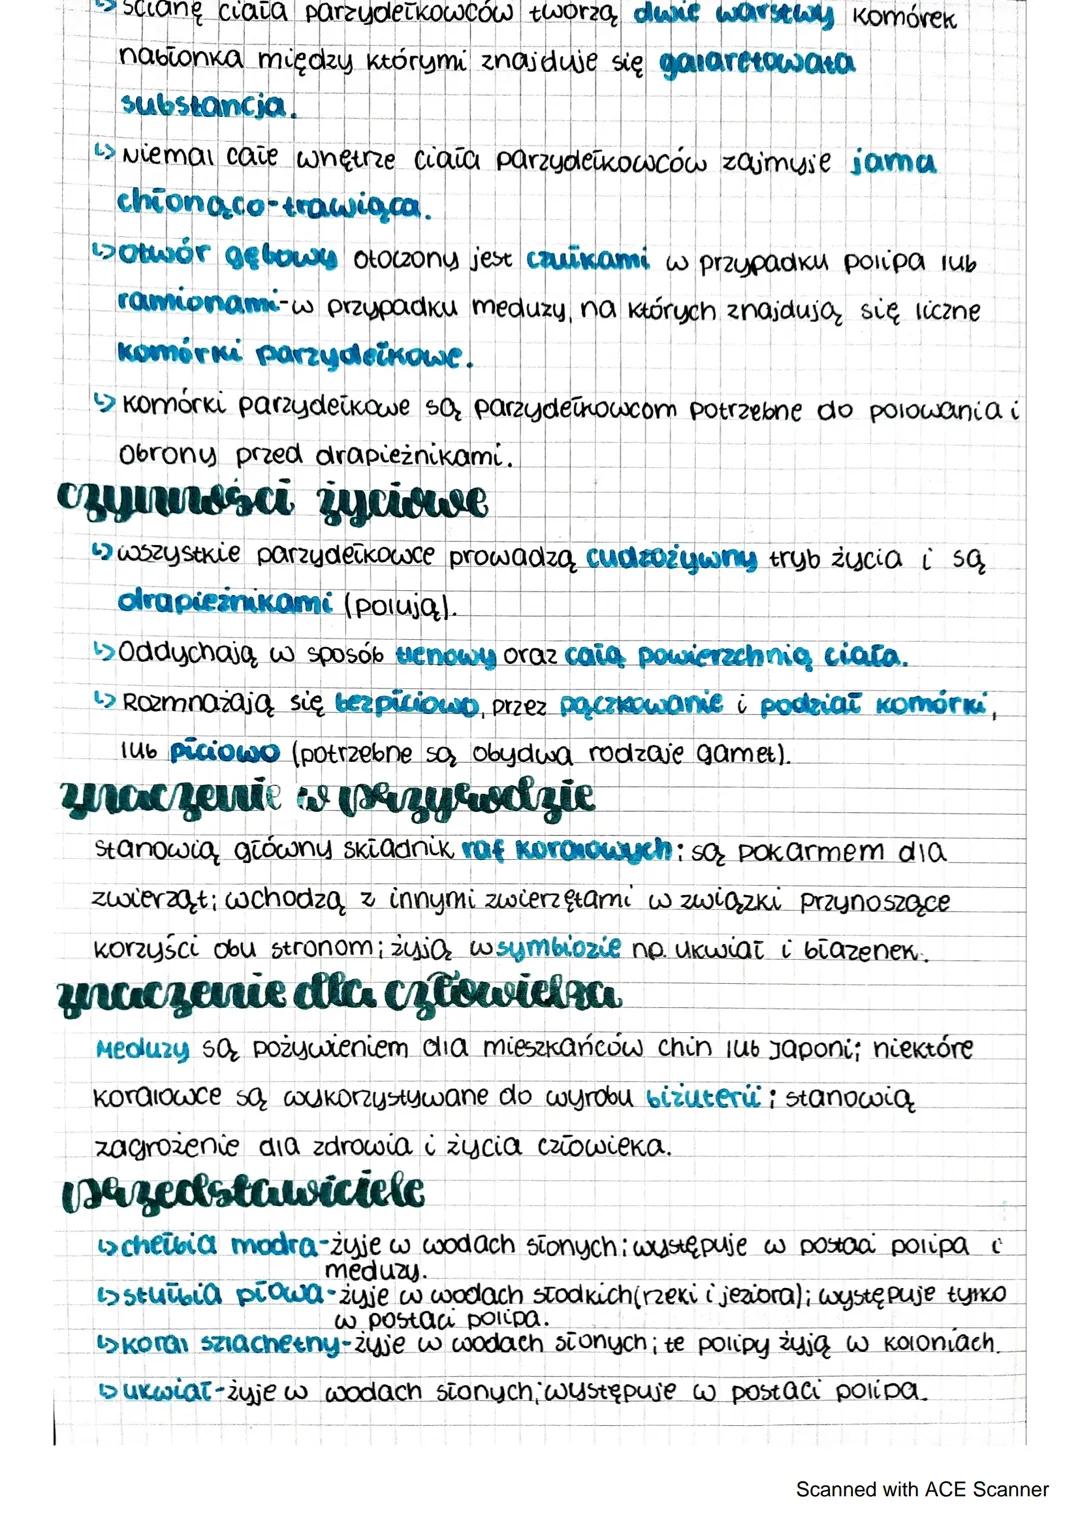 ↳ścianę ciała parzydełkowców tworzą dwie warstwy komórek
nabłonka między którymi znajduje się galaretowata
substancja.
↳Niemal całe wnętrze ciała parzydełkowców zajmuje jama
chłonąco-trawiąca.
↳Otwór gębowy otoczony jest czułkami w przypadku polipa lub
ramionami-w przypadku meduzy, na których znajdują się liczne
komórki parzydełkowe.
↳Komórki parzydełkowe są parzydełkowcom potrzebne do polowania i
obrony przed drapieżnikami.
czynności życiowe
↳wszystkie parzydełkowce prowadzą cudzożywny tryb życia i są
drapieżnikami (polują).
↳Oddychają w sposób tlenowy oraz całą powierzchnią ciała.
↳Rozmnażają się bezpłciowo, przez pączkowanie i podział komórki,
lub płciowo (potrzebne są obydwa rodzaje gamet).
znaczenie w przyrodzie
stanowią główny składnik raf koralowych; są pokarmem dla
zwierząt; wchodzą z innymi zwierzętami w związki przynoszące
korzyści obu stronom; żyją w symbiozie np. ukwiał i błazenek.
znaczenie dla człowieka
Meduzy są pożywieniem dla mieszkańców chin lub Japoni; niektóre
koralowce są wykorzystywane do wyrobu biżuterii; stanowią
zagrożenie dla zdrowia i życia człowieka.
przedstawiciele
↳chełbia modra-żyje w wodach słonych; występuje w postaci polipa i
meduzy.
↳stułbia płowa-żyje w wodach słodkich(rzeki i jeziora); występuje tylko
w postaci polipa.
↳koral szlachetny-żyje w wodach słonych; te polipy żyją w koloniach.
↳ukwiał-żyje w wodach słonych; występuje w postaci polipa.
Scanned with ACE Scanner